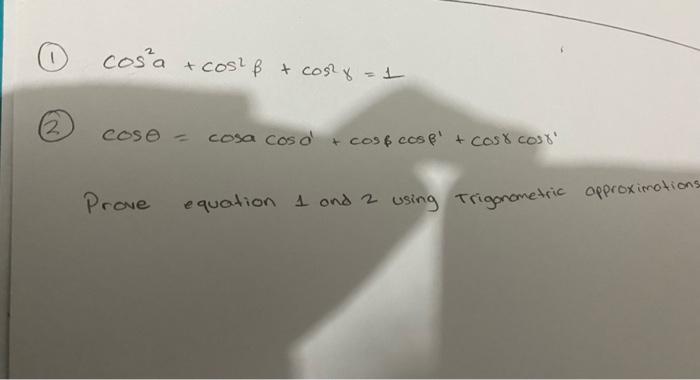 ① cos²a + cos² β + cos² γ = 1
② cosθ = cosa cosa' + cosβ cosβ' + cosγ cosγ'
Prove equation 1 and 2 using Trigonometric approximations